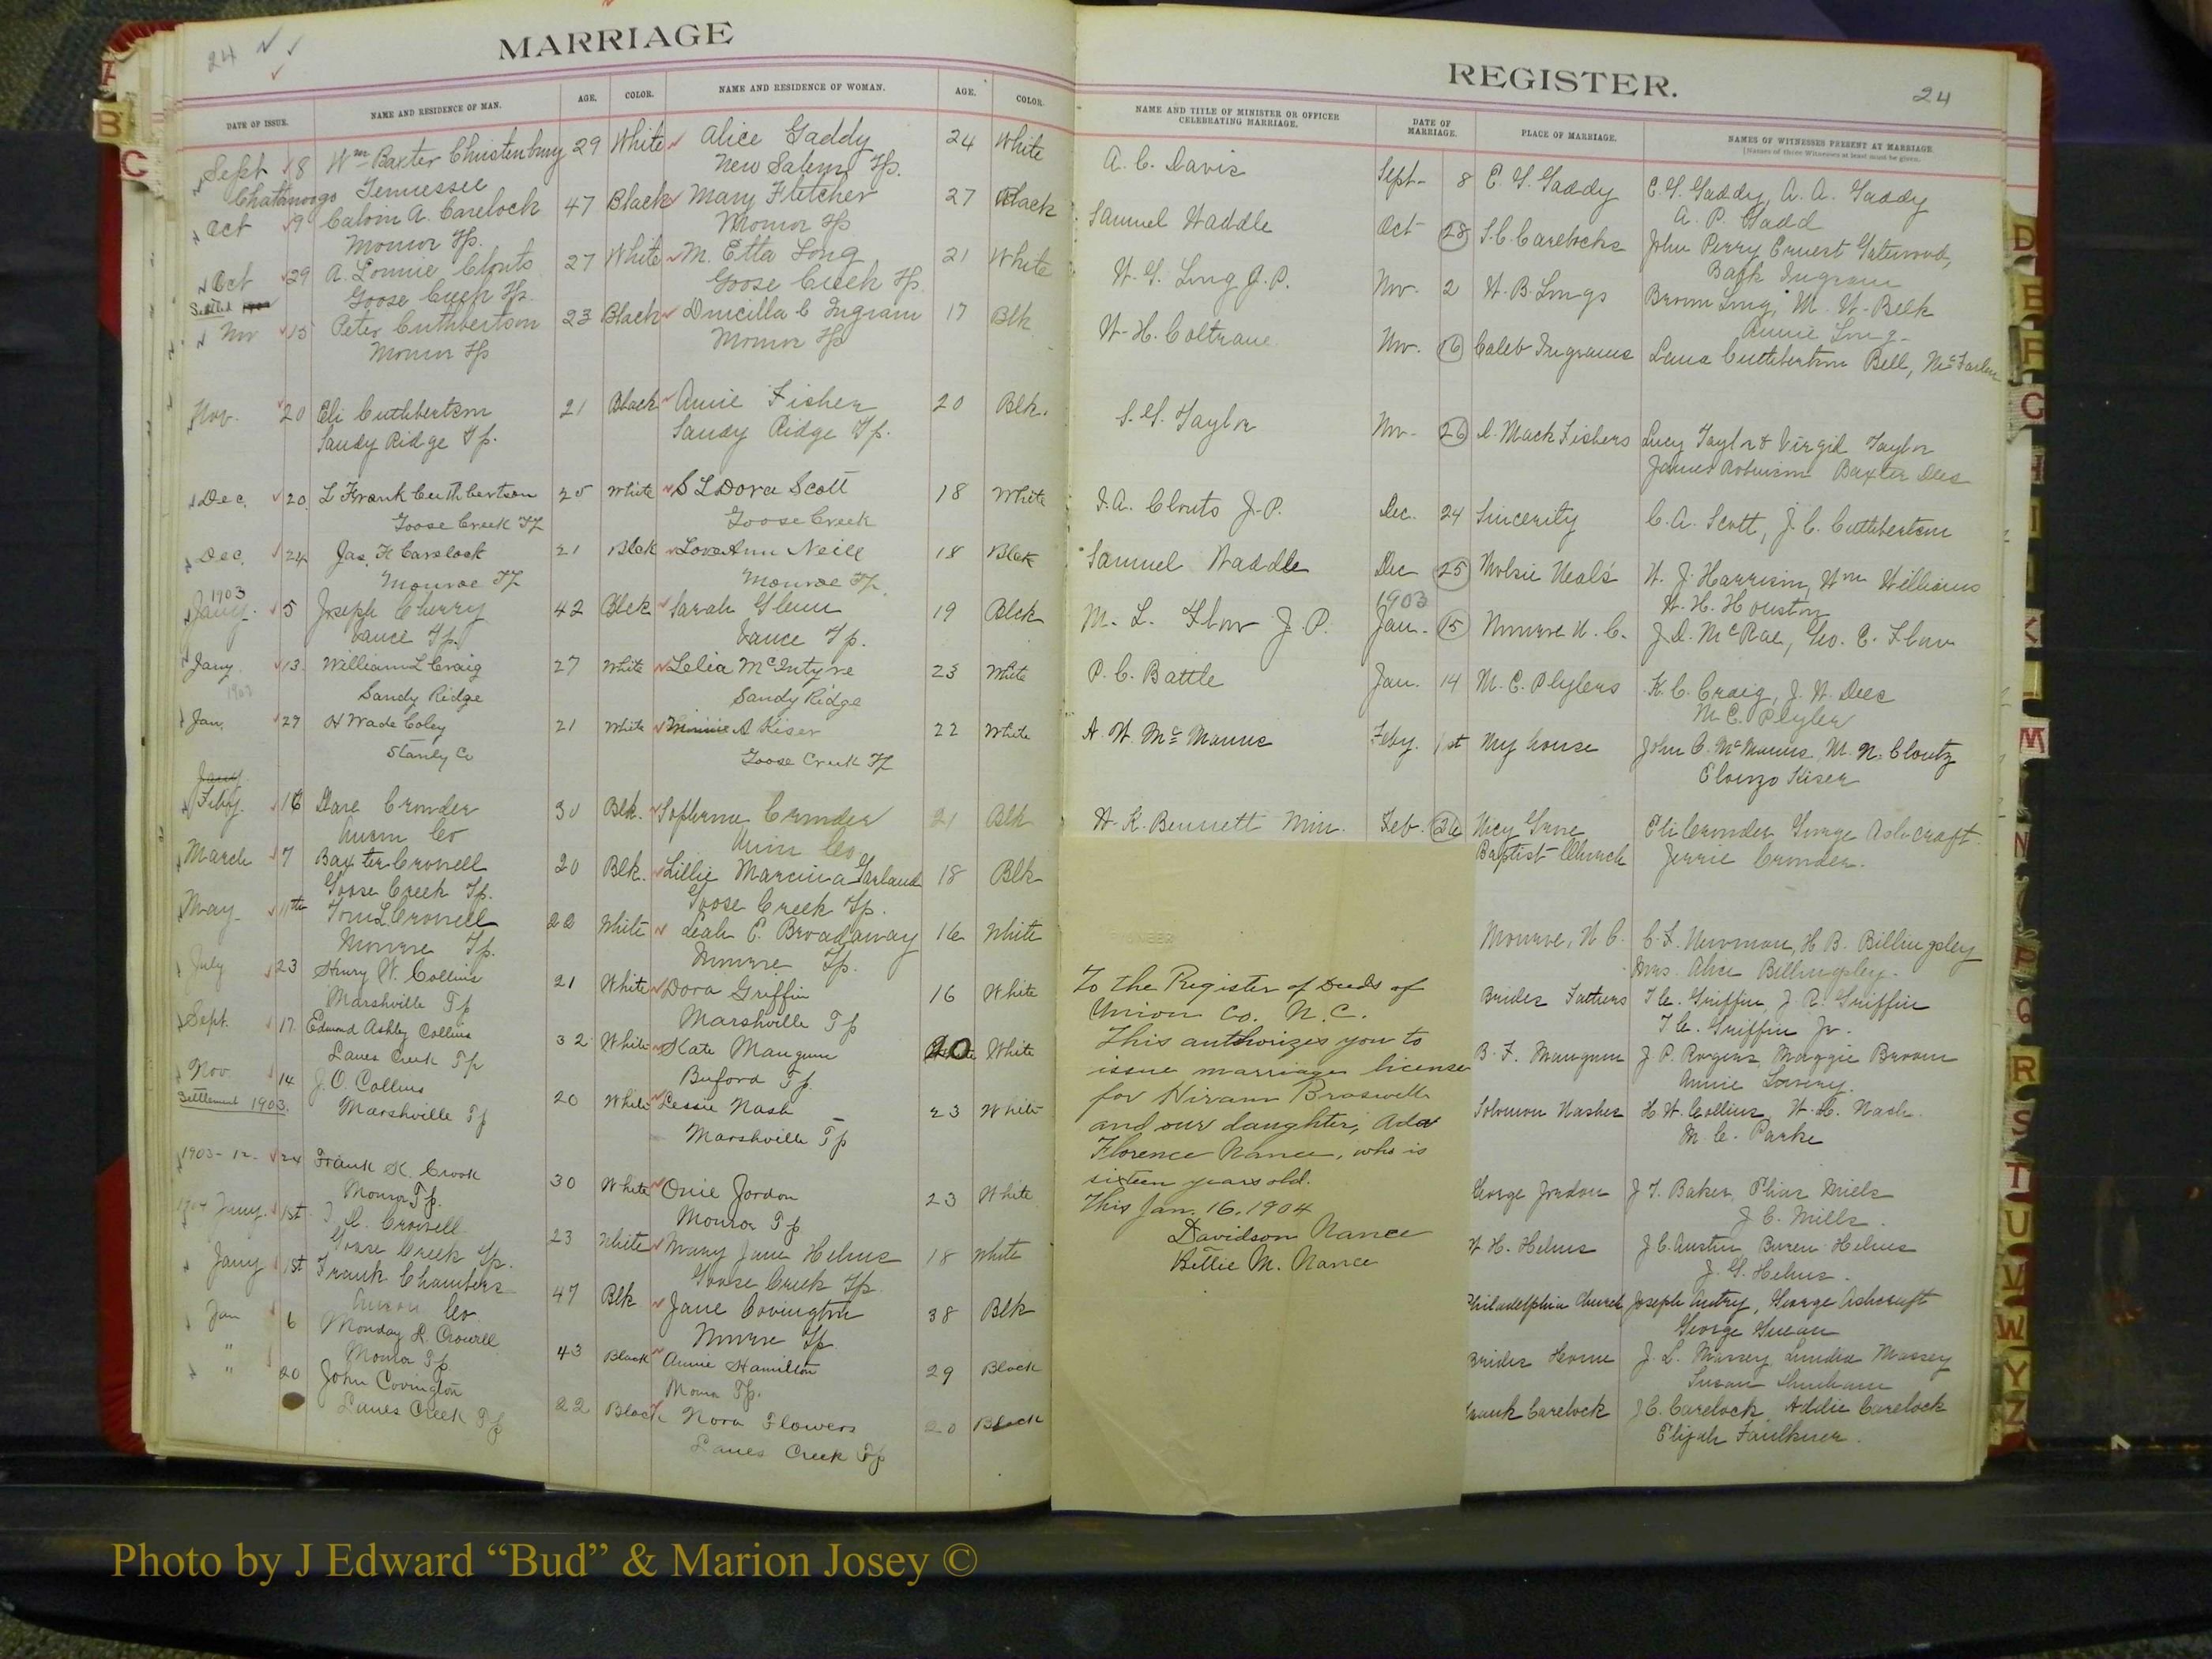 24
MARRIAGE
DATE OF ISSUE. NAME AND RESIDENCE OF MAN. AGE. COLOR. NAME AND RESIDENCE OF WOMAN. AGE. COLOR.
Sept 8 Wm Baxter Christenbury 29 White Alice Gaddy 24 White
Chattanooga Tennessee New Salem Tp.
Oct 9 Calvin A. Carelock 47 Black Mary Fletcher 27 Black
Monroe Tp. Monroe Tp
Oct 29 A. Lonnie Clonts 27 White M. Etta Long 21 White
Goose Creek Tp. Goose Creek Tp.
Nov 15 Peter Cuthbertson 23 Black Drucilla C Ingram 17 Blk
Monroe Tp Monroe Tp
Nov. 20 Eli Cuthbertson 21 Black Annie Fisher 20 Blk.
Sandy Ridge Tp. Sandy Ridge Tp.
Dec. 20 L Frank Cuthbertson 25 White S L Dora Scott 18 White
Goose Creek Tp Goose Creek
Dec. 24 Jas. H Carelock 21 Blck Love Ann Neill 18 Blck
Monroe Tp Monroe Tp.
1903
Jany. 5 Joseph Cherry 42 Blck Sarah Glenn 19 Blck
Vance Tp. Vance Tp.
Jany 13. William L Craig 27 White Lelia McIntyre 23 White
Sandy Ridge Sandy Ridge
Jan. 29 H Wade Coley 21 White Minnie A Kiser 22 White
Stanly Co Goose Creek Tp
Jany
Feby. 16 Dare Crowder 30 Blk. Sophronu Crowder 21 Blk
Union Co Union Co
March 7 Baxter Crowell 20 Blk. Lillie Marcina Garland 18 Blk
Goose Creek Tp. Goose Creek Tp.
May 11th Tom L Crowell 22 White Leah E. Broadaway 16 White
Monroe Tp. Monroe Tp.
July 23 Henry W. Collins 21 White Dora Griffin 16 White
Marshville Tp Marshville Tp
Sept. 17 Edward Ashley Collins 32 White Kate Mangum 20 White
Lanes Creek Tp Buford Tp.
Nov. 14 J. O. Collins 20 White Lessie Nash 23 White
Settlement 1903. Marshville Tp Marshville Tp
1903-12- 24 Frank K. Crook 30 White Onie Jordon 23 White
Monroe Tp. Monroe Tp
1904 Jany. 1st C. Crowell 23 White Mary Jane Helms 18 White
Goose Creek Tp. Goose Creek Tp.
Jany 1st Frank Chambers 47 Blk Jane Covington 38 Blk
Anson Co Monroe Tp
Jan 6 Monday R. Crowell 43 Black Annie Hamilton 29 Black
Monroe Tp Monroe Tp.
" 20 John Covington 22 Black Nora Flowers 20 Black
Lanes Creek Tp Lanes Creek Tp
REGISTER.
24
NAME AND TITLE OF MINISTER OR OFFICER CELEBRATING MARRIAGE. DATE OF MARRIAGE. PLACE OF MARRIAGE. NAMES OF WITNESSES PRESENT AT MARRIAGE
[Names of three Witnesses at least must be given.
A. C. Davis Sept- 8 E. G. Gaddy E. G. Gaddy, A. A. Gaddy
A. P. Gadd
Samuel Waddle Oct 28 S. C. Carelocks John Perry Ernest Gatewood,
Ingram
H. G. Long J. P. Nov. 2 W. B. Longs Brown Long, M. W. Belk
Annie Long
W. H. Coltrane Nov. 16 Caleb Ingrams Lana Cuthbertson Bell, McFarlen
S. G. Taylor Nov. 26 Mack Fishers Lucy Taylor & Virgil Taylor
James Robinson Baxter Dees
J. A. Clonts J. P. Dec. 24 Sincerity C. A. Scott, J. C. Cuthbertson
Samuel Waddle Dec 25 Mobsie Neal's W. J. Harrison, Wm Williams
W. H. Houston
1903
M. L. Flow J. P. Jan. 15 Monroe N. C. J. D. McRae, Geo. E. Flow
P. C. Battle Jan. 14 M. C. Plylers K. C. Craig, J. W. Dees
M C. Plyler
A. W. McManus Feby. 1st My house John C. McManus, M. N. Cloutz
Elonzo Kiser
H. K. Bennett Min. Feb. 26 Nicy Grove Eli Crowder George Ashcraft
Baptist Church Jerrie Crowder.
Monroe, N C. C. F. Newman, H. B. Billingsley
Mrs. Alice Billingsley.
Brides Fathers T. C. Griffin J. R. Griffin
T. C. Griffin Jr.
B. F. Mangum J P. Rogers, Maggie Broom
Annie Lowery.
Solomon Nashes H. W. Collins, W. H. Nash.
M. C. Parke
George Jordon J T. Baker, Pliar Mills
J. C. Mills.
W. H. Helms J. C. Austin, Buren Helms
J. G. Helms.
Philadelphia Church Joseph Autry, George Ashcraft
George
Brides Home J. L. Massey, Lundia Massey
Susan
Frank Carelock J C. Carelock, Addie Carelock
Elijah Faulkner.
To the Register of Deeds of
Union Co. N.C.
This authorizes you to
issue marriage license
for Hiram Braswell
and our daughter, Ada
Florence Nance, who is
sixteen years old.
This Jan. 16, 1904
Davidson Nance
Billie M. Nance
B
C
D
E
F
G
H
I
K
L
M
N
P
Q
R
S
T
U
V
W
Y
Z
Photo by J Edward “Bud” & Marion Josey ©